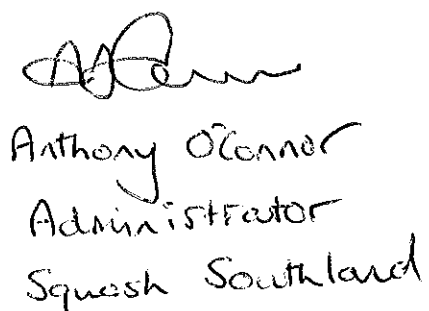 Anthony O'Connor
Administrator
Squash Southland